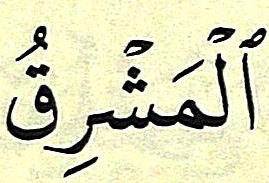 ٱلْمَشْرِقُ